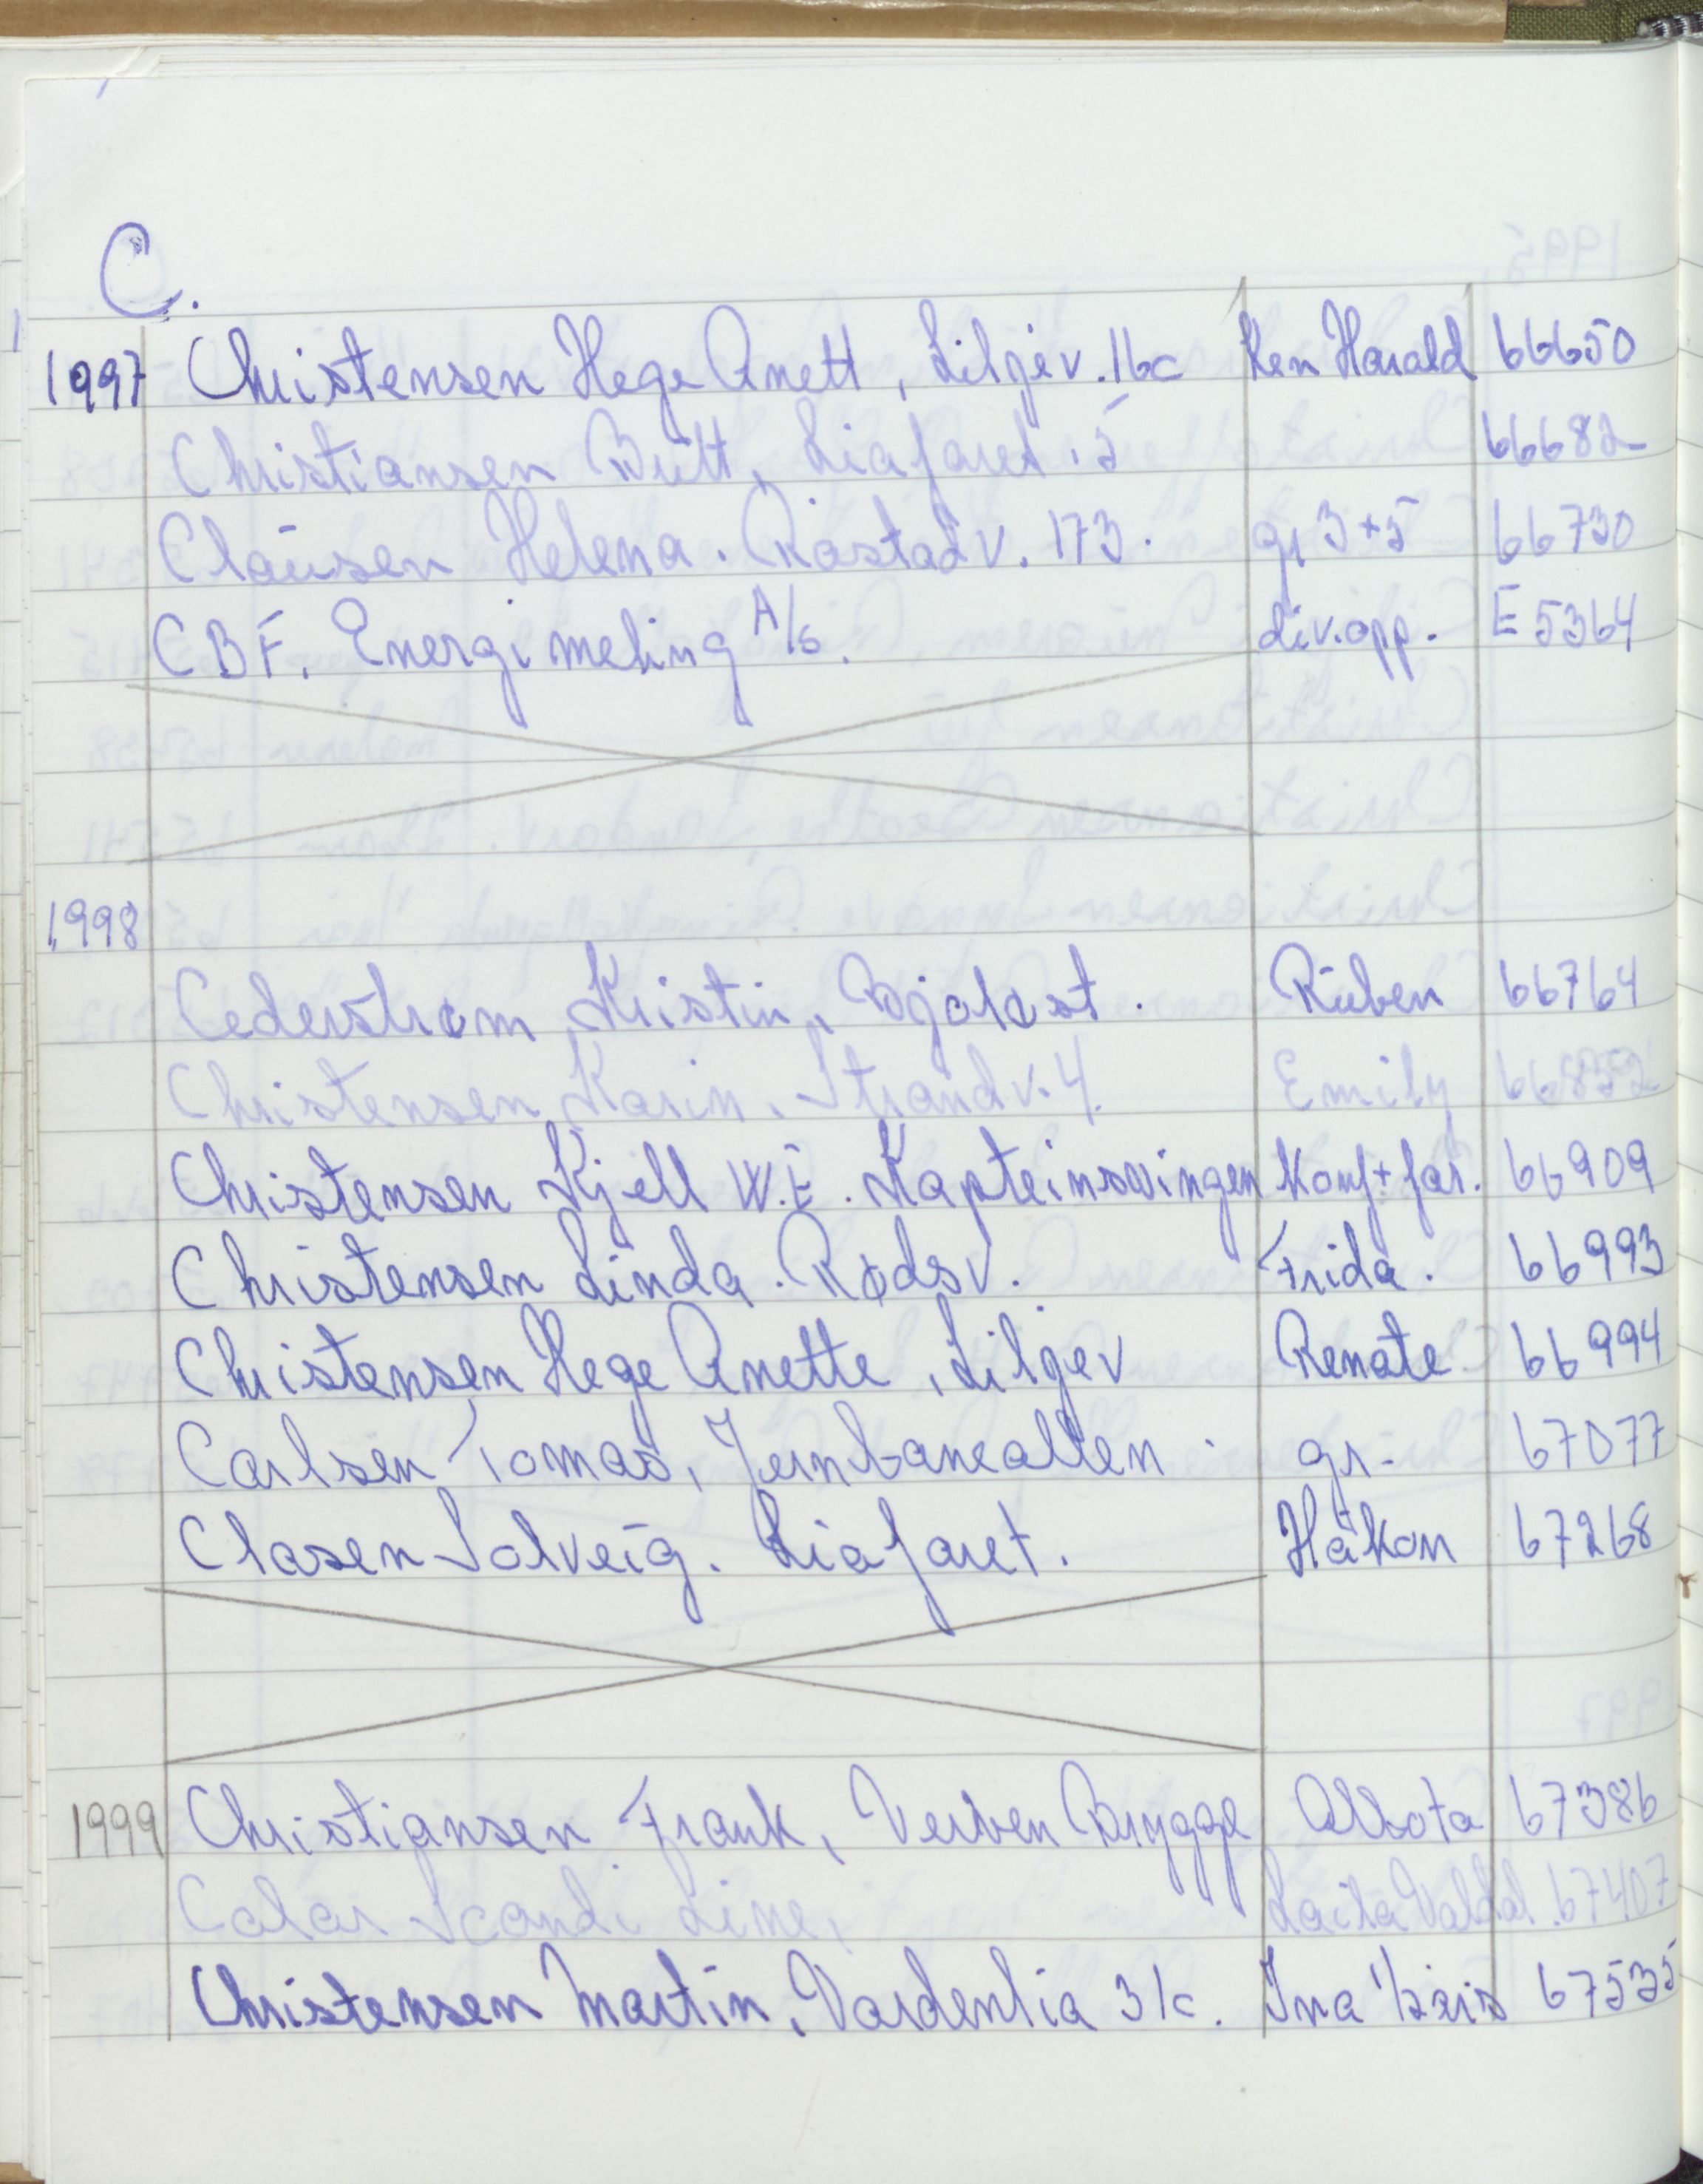 C.
1997 Christensen Hege Anett, Liljev. 16c Ken Harald 66650
Christiansen Britt, Liafaret. 5 66682
Clausen Helena. Råstadv. 173. gr 3+5 66730
CBF. Energimeling A/s. div.opp. E 5364
1998
Cederstrøm Kristin, Bjølest. Ruben 66764
Christensen Karin. Strandv. 4. Emily
Christensen Kjell W.E. Kapteinsvingen Konf+far. 66909
Christensen Linda. Rødsv. Frida. 66993
Christensen Hege Anette, Liljev Renate 66994
Carlsen Tomas, Jernbanealleen gr. 67077
Clasen Solveig. Liafaret. Håkon 67268
1999 Christiansen Frank, Verven Brygge 67386
Color Scandi Line, Laila Valdal. 67407
Christensen Martin, Vardenlia 3 Ina 67535